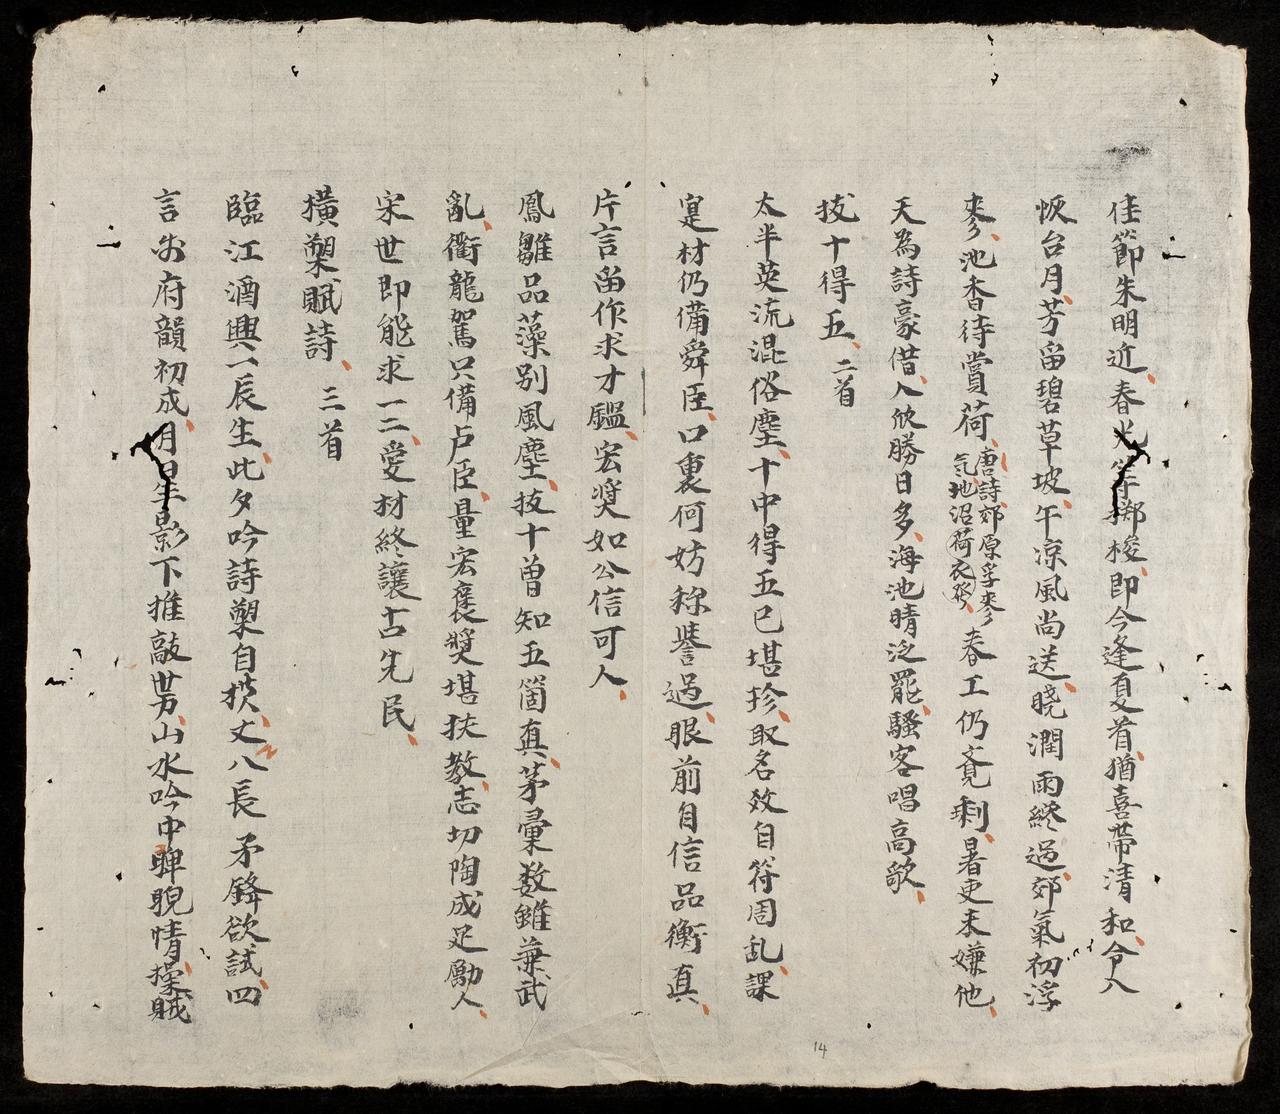 佳節朱明近春光等擲梭即今逢夏首猶喜帶清和令入
恢台月芳留碧草坡午凉風尚送曉潤雨終過郊氣初浮
麥池香待賞荷唐詩郊原孚麥氣地沼荷衣發春工仍竟剩暑更未嫌他
天為詩豪借人欣勝日多海池晴泛罷騷客唱高歌
拔十得五二首
太半英流混俗塵十中得五已堪珍取名效自符周乱課
寔材仍備舜臣口裏何妨称誉過眼前自信品衡真
片言留作求才鑑宏奬如公信可人
鳳雛品藻别風塵拔十曾知五箇真茅彙数雖兼武
亂衢龍駕只備卢臣量宏褒奬堪扶教志切陶成足勵人
宋世即能求一二愛材終讓古先民
橫槊賦詩三首
臨江酒興一辰生此夕吟詩槊自横丈八長矛鋒欲試四
言樂府韻初成月星影下推敲势山水吟中睥睨情操賊
14